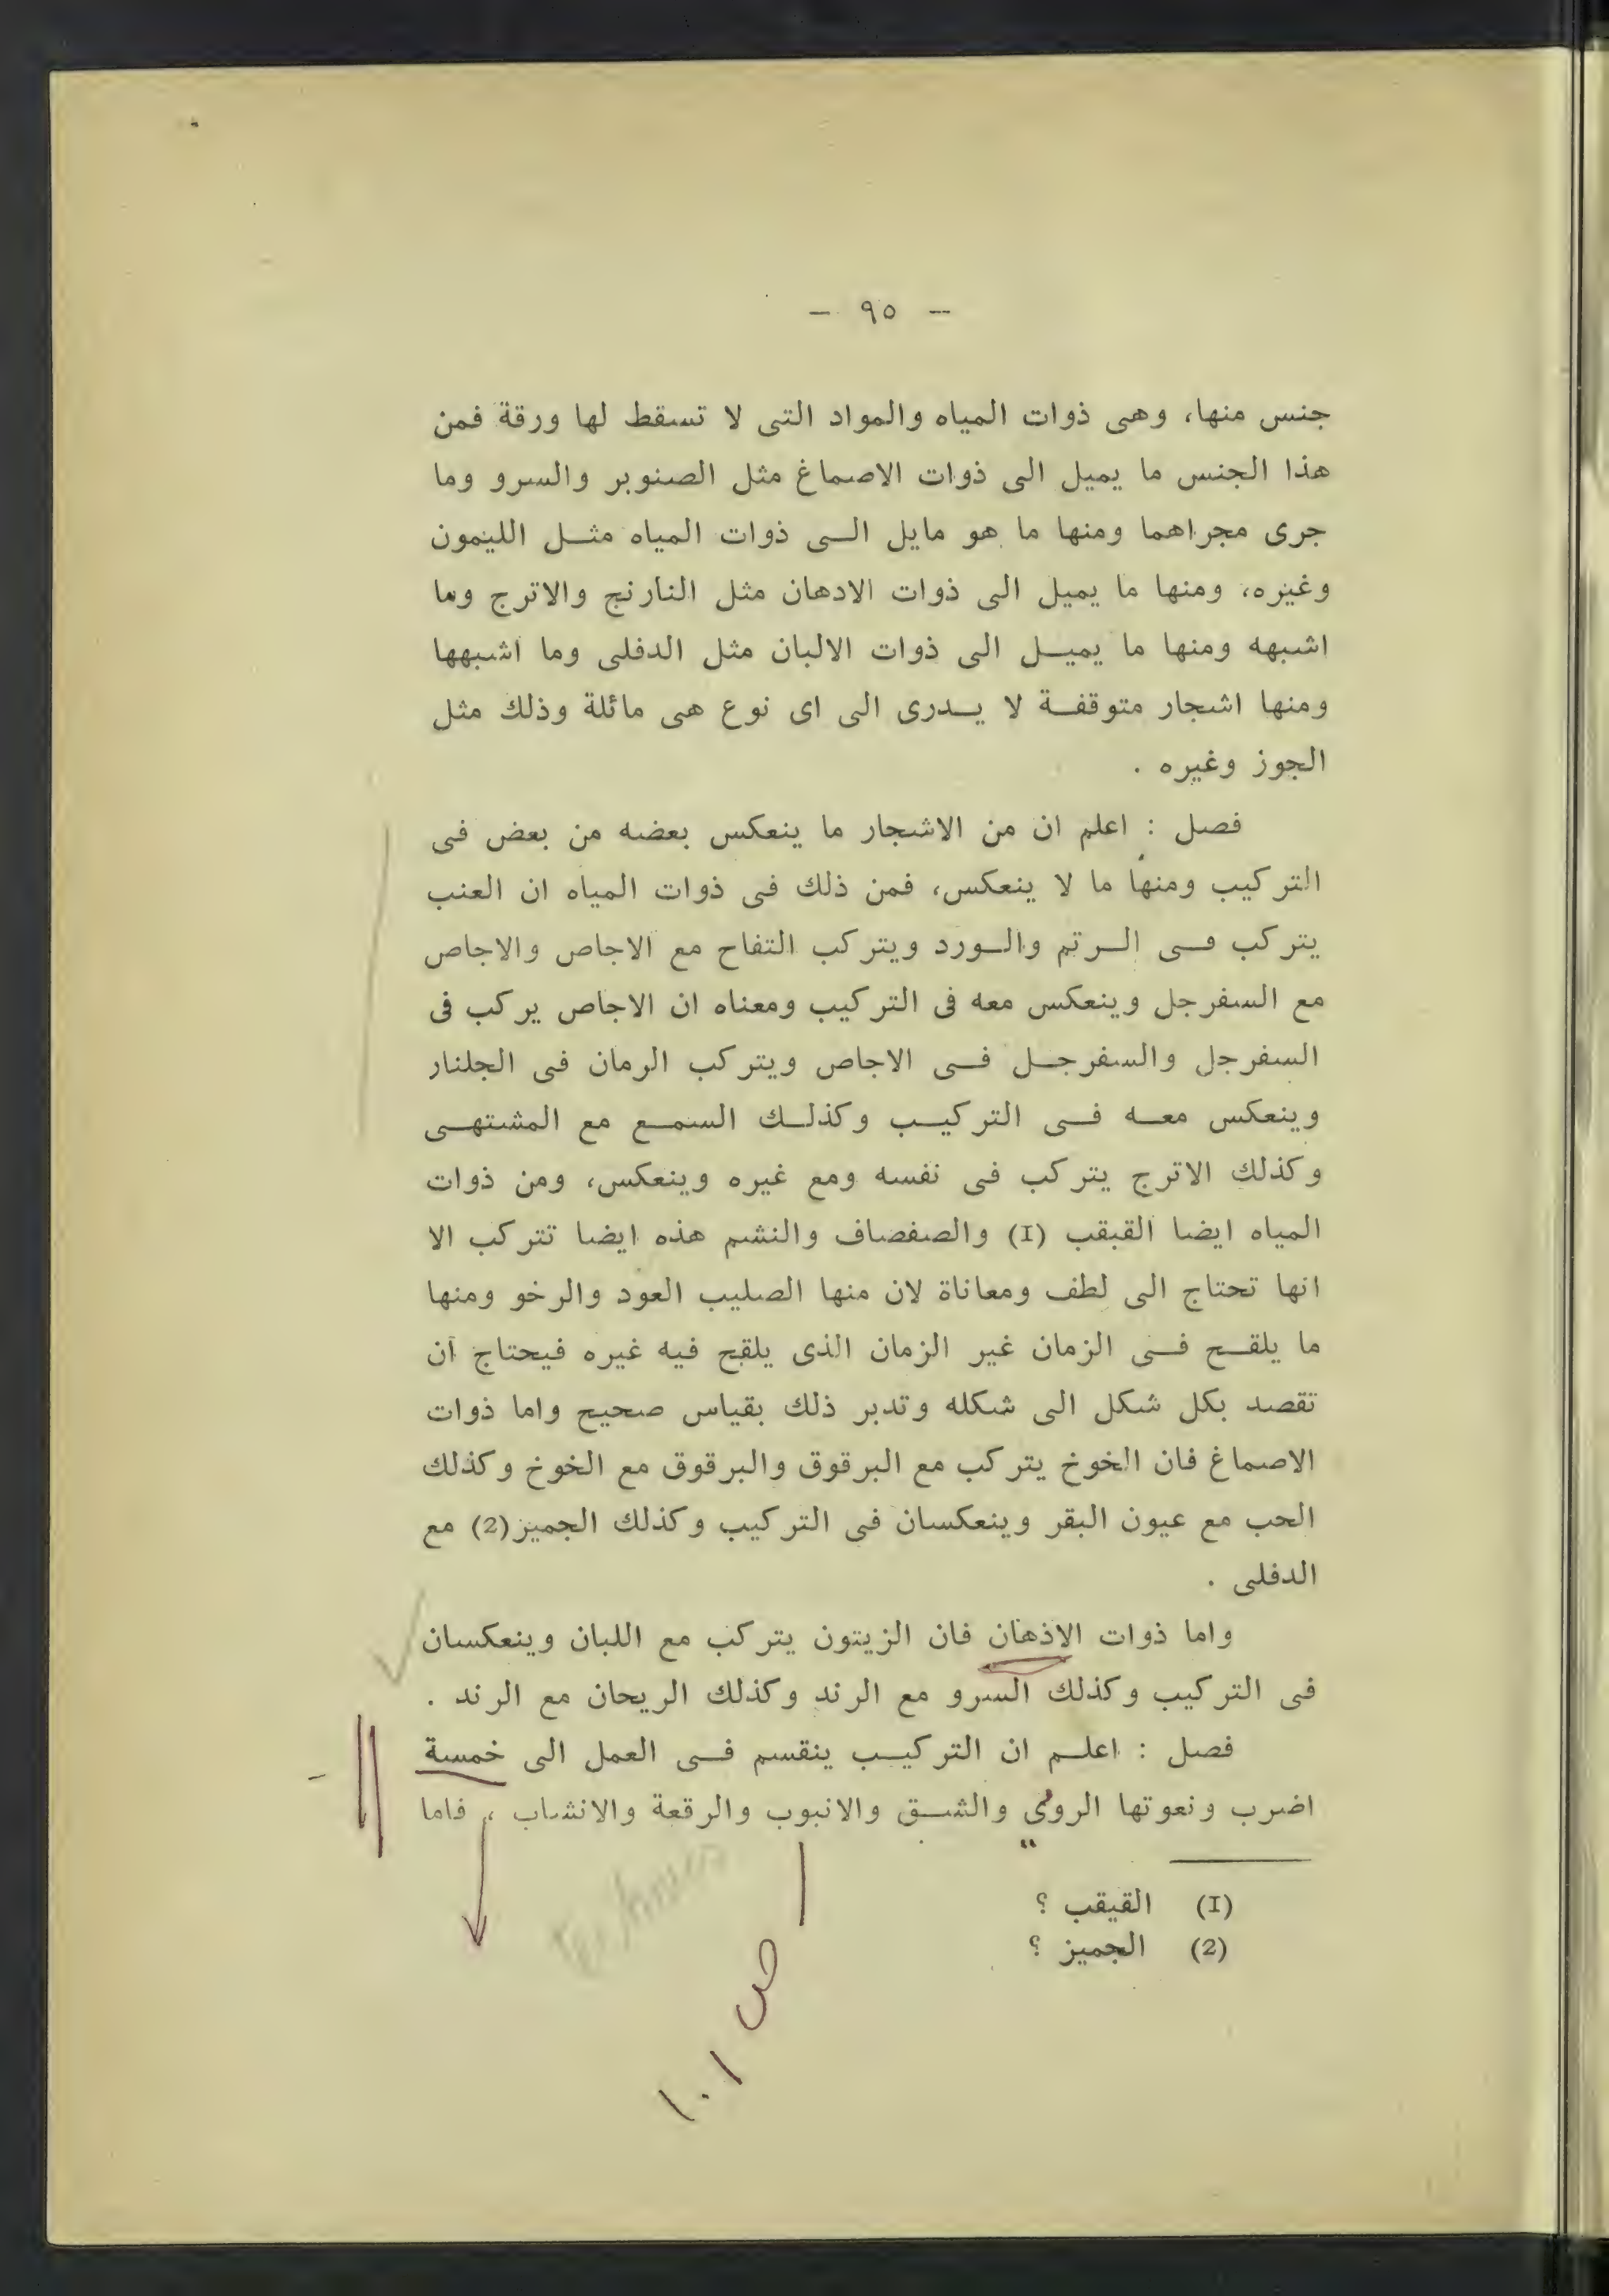 — ٩٥ —
جنس منها، وهى ذوات المياه والمواد التى لا تسقط لها ورقة فمن
هذا الجنس ما يميل الى ذوات الاصماغ مثل الصنوبر والسرو وما
جرى مجراهما ومنها ما هو مايل الى ذوات المياه مثل الليمون
وغيره، ومنها ما يميل الى ذوات الادهان مثل النارنج والاترج وما
اشبهه ومنها ما يميل الى ذوات الالبان مثل الدفلى وما اشبهها
ومنها اشجار متوقفة لا يدرى الى اى نوع هى مائلة وذلك مثل
الجوز وغيره .
فصل : اعلم ان من الاشجار ما ينعكس بعضه من بعض فى
التركيب ومنها ما لا ينعكس، فمن ذلك فى ذوات المياه ان العنب
يتركب فى الرتم والورد ويتركب التفاح مع الاجاص والاجاص
مع السفرجل وينعكس معه فى التركيب ومعناه ان الاجاص يركب فى
السفرجل والسفرجل فى الاجاص ويتركب الرمان فى الجلنار
وينعكس معه فى التركيب وكذلك السمع مع المشتهى
وكذلك الاترج يتركب فى نفسه ومع غيره وينعكس، ومن ذوات
المياه ايضا القبقب (I) والصفصاف والنشم هذه ايضا تتركب الا
انها تحتاج الى لطف ومعاناة لان منها الصليب العود والرخو ومنها
ما يلقح فى الزمان غير الزمان الذى يلقح فيه غيره فيحتاج ان
تقصد بكل شكل الى شكله وتدبر ذلك بقياس صحيح واما ذوات
الاصماغ فان الخوخ يتركب مع البرقوق والبرقوق مع الخوخ وكذلك
الحب مع عيون البقر وينعكسان فى التركيب وكذلك الجميز(2) مع
الدفلى .
واما ذوات الاذهان فان الزيتون يتركب مع اللبان وينعكسان
فى التركيب وكذلك السرو مع الرند وكذلك الريحان مع الرند .
فصل : اعلم ان التركيب ينقسم فى العمل الى خمسة
اضرب ونعوتها الرومى والشق والانبوب والرقعة والانشاب ، فاما
(I) القيقب ؟
(2) الجميز ؟
ص ١٠١